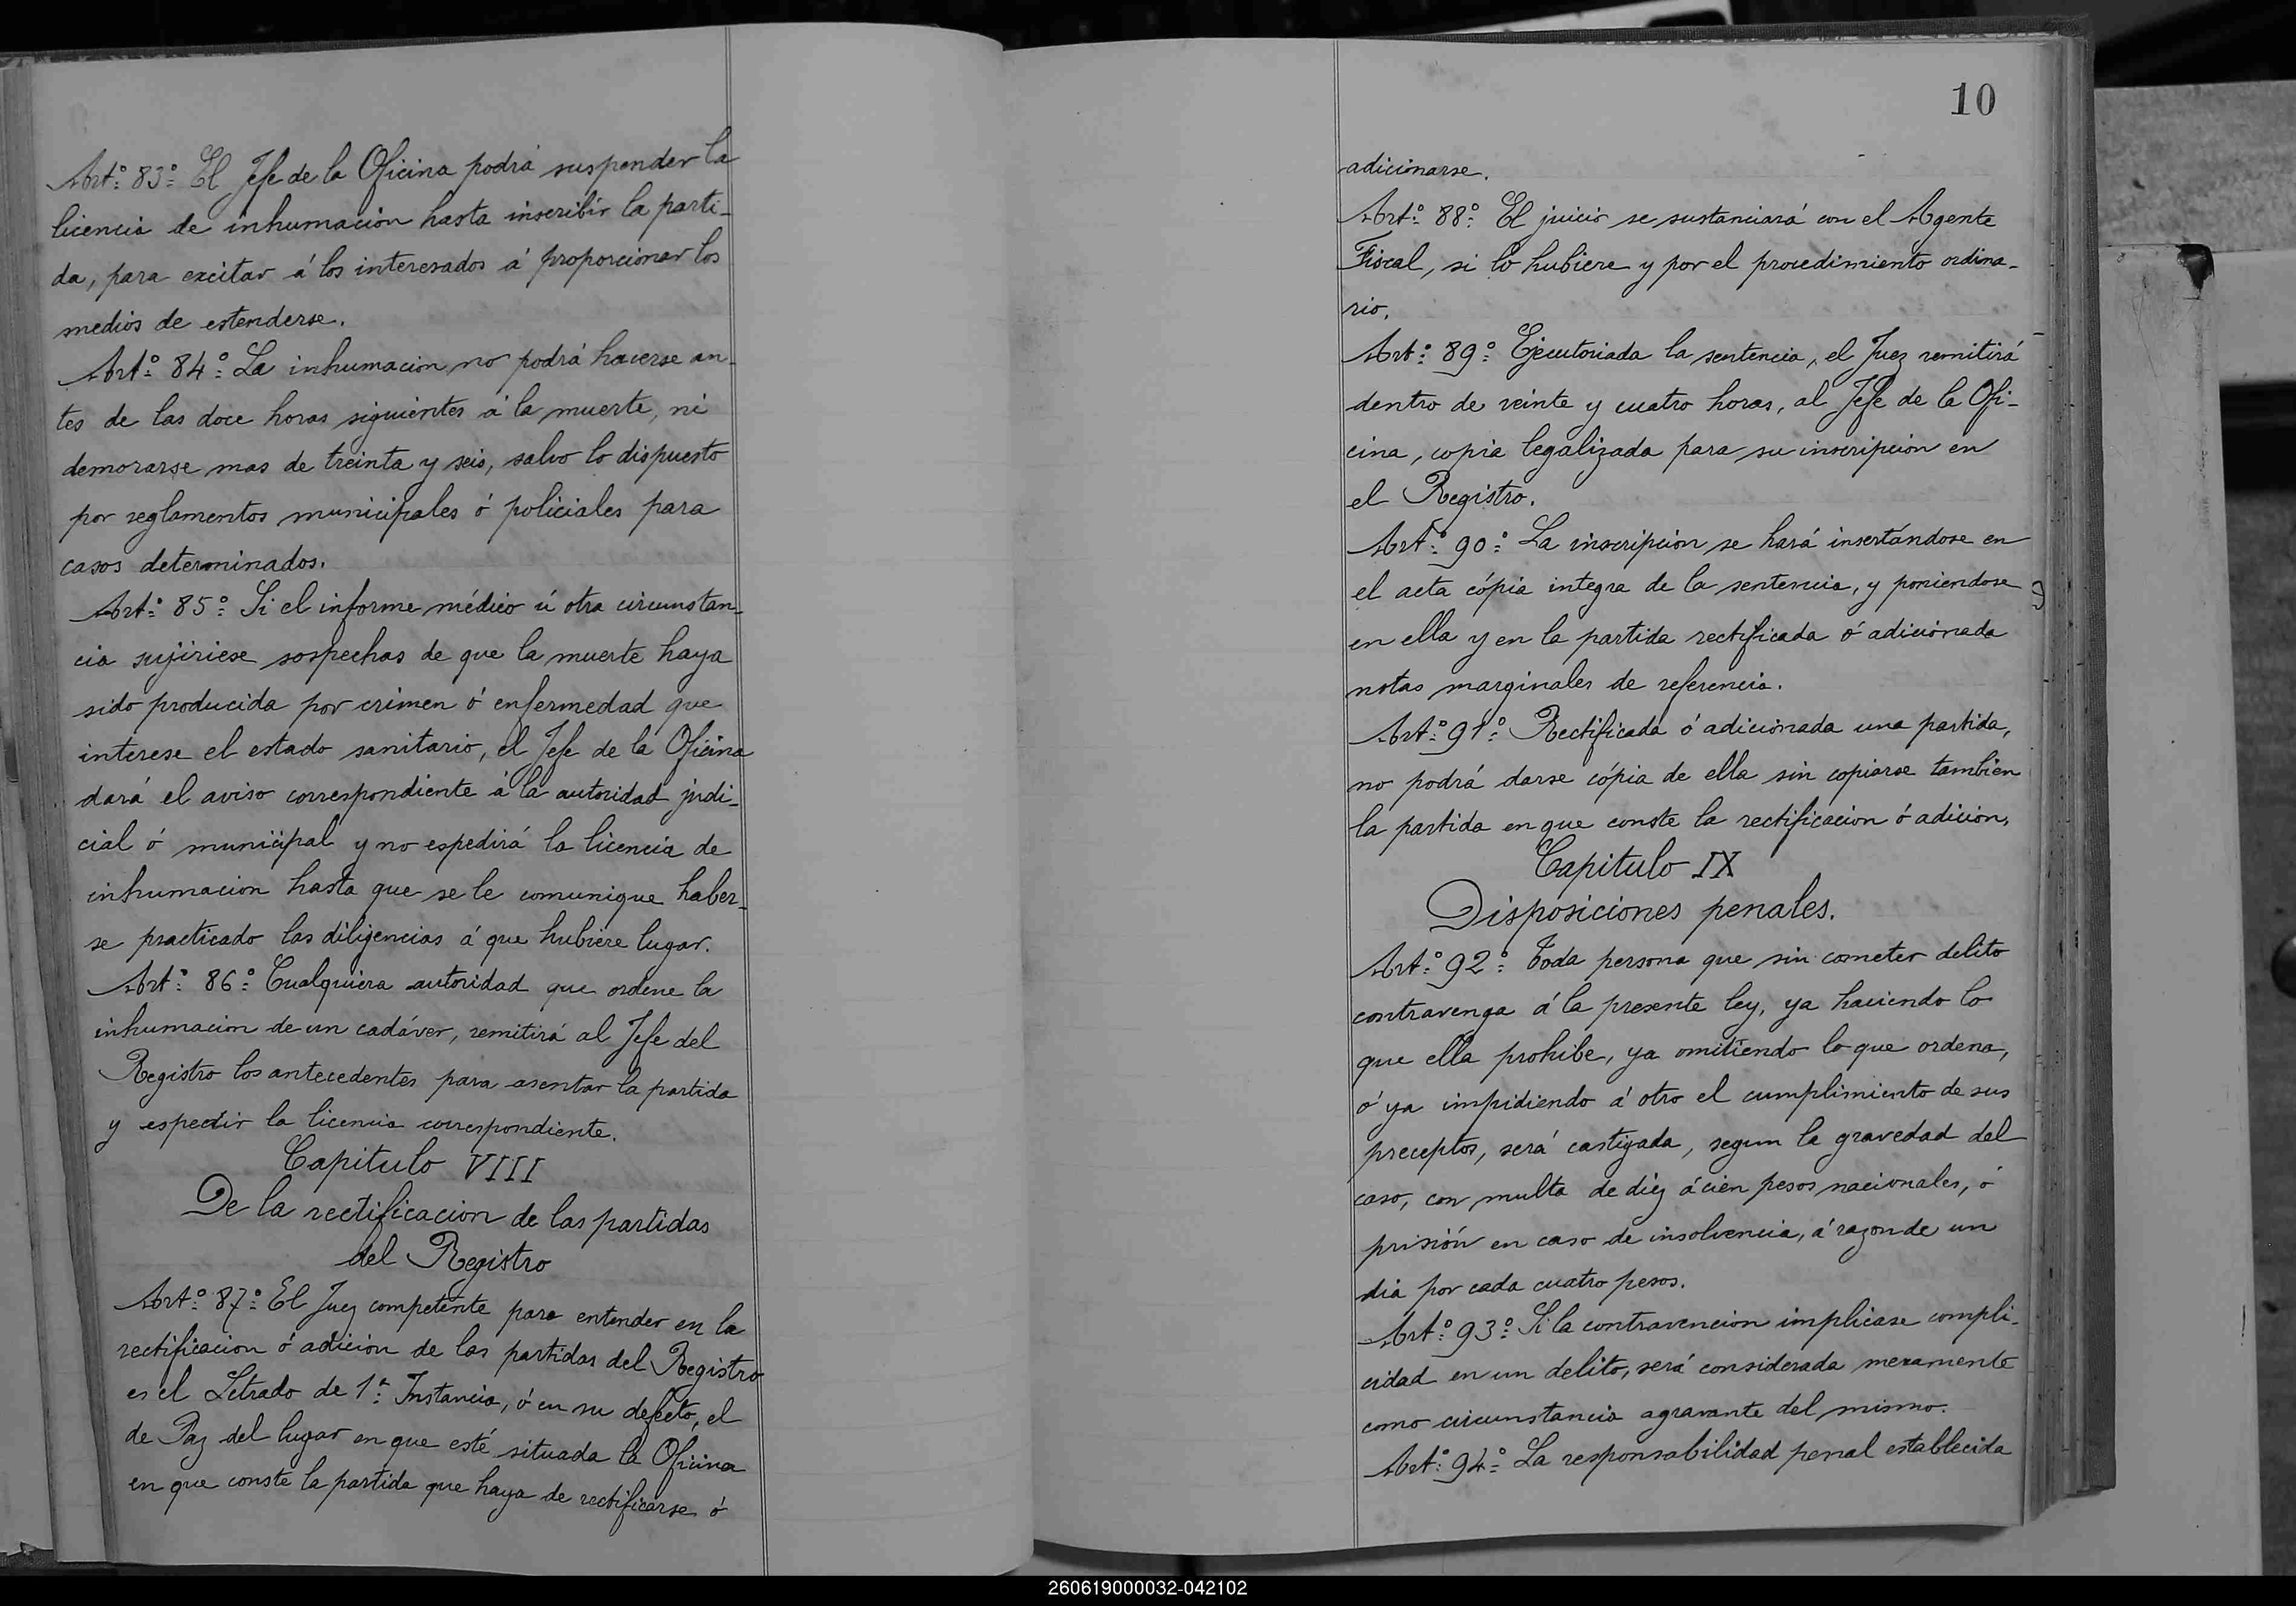 Artº 83º El Jefe de la Oficina podrá suspender la
licencia de inhumacion hasta inscribir la parti-
da, para excitar á los interesados á proporcionar los
medios de estenderse.
Artº 84º La inhumacion no podrá hacerse an-
tes de las doce horas siguientes á la muerte, ni
demorarse mas de treinta y seis, salvo lo dispuesto
por reglamentos municipales ó policiales para
casos determinados.
Artº 85º Si el informe médico ú otra circunstan-
cia sujiriese sospechas de que la muerte haya
sido producida por crimen ó enfermedad que
interese el estado sanitario, el Jefe de la Oficina
dará el aviso correspondiente á la autoridad judi-
cial ó municipal y no espedirá la licencia de
inhumacion hasta que se le comunique haber-
se practicado las diligencias á que hubiere lugar.
Artº 86º Cualquiera autoridad que ordene la
inhumacion de un cadáver, remitirá al Jefe del
Registro los antecedentes para asentar la partida
y espedir la licencia correspondiente.
Capitulo VIII
De la rectificacion de las partidas
del Registro
Artº 87º El Juez competente para entender en la
rectificacion ó adicion de las partidas del Registro
es el Letrado de 1ª Instancia, ó en su defecto, el
de Paz del lugar en que esté situada la Oficina
en que conste la partida que haya de rectificarse ó
10
adicionarse.
Artº 88º El juicio se sustanciará con el Agente
Fiscal, si lo hubiere y por el procedimiento ordina-
rio.
Artº 89º Ejecutoriada la sentencia, el Juez remitirá
dentro de veinte y cuatro horas, al Jefe de la Ofi-
cina, copia legalizada para su inscripcion en
el Registro.
Artº 90º La inscripcion se hará insertándose en
el acta cópia integra de la sentencia, y poniendose
en ella y en la partida rectificada ó adicionada
notas marginales de referencia.
Artº 91º Rectificada ó adicionada una partida,
no podrá darse cópia de ella sin copiarse tambien
la partida en que conste la rectificacion ó adicion.
Capitulo IX
Disposiciones penales.
Artº 92º Toda persona que sin cometer delito
contravenga á la presente ley, ya haciendo lo
que ella prohibe, ya omitiendo lo que ordena,
ó ya impidiendo á otro el cumplimiento de sus
preceptos, será castigada, segun la gravedad del
caso, con multa de diez á cien pesos nacionales, ó
prisión en caso de insolvencia, á razon de un
dia por cada cuatro pesos.
Artº 93º Si la contravencion implicase compli-
cidad en un delito, será considerada meramente
como circunstancia agravante del mismo.
Artº 94º La responsabilidad penal establecida
260619000032-042102